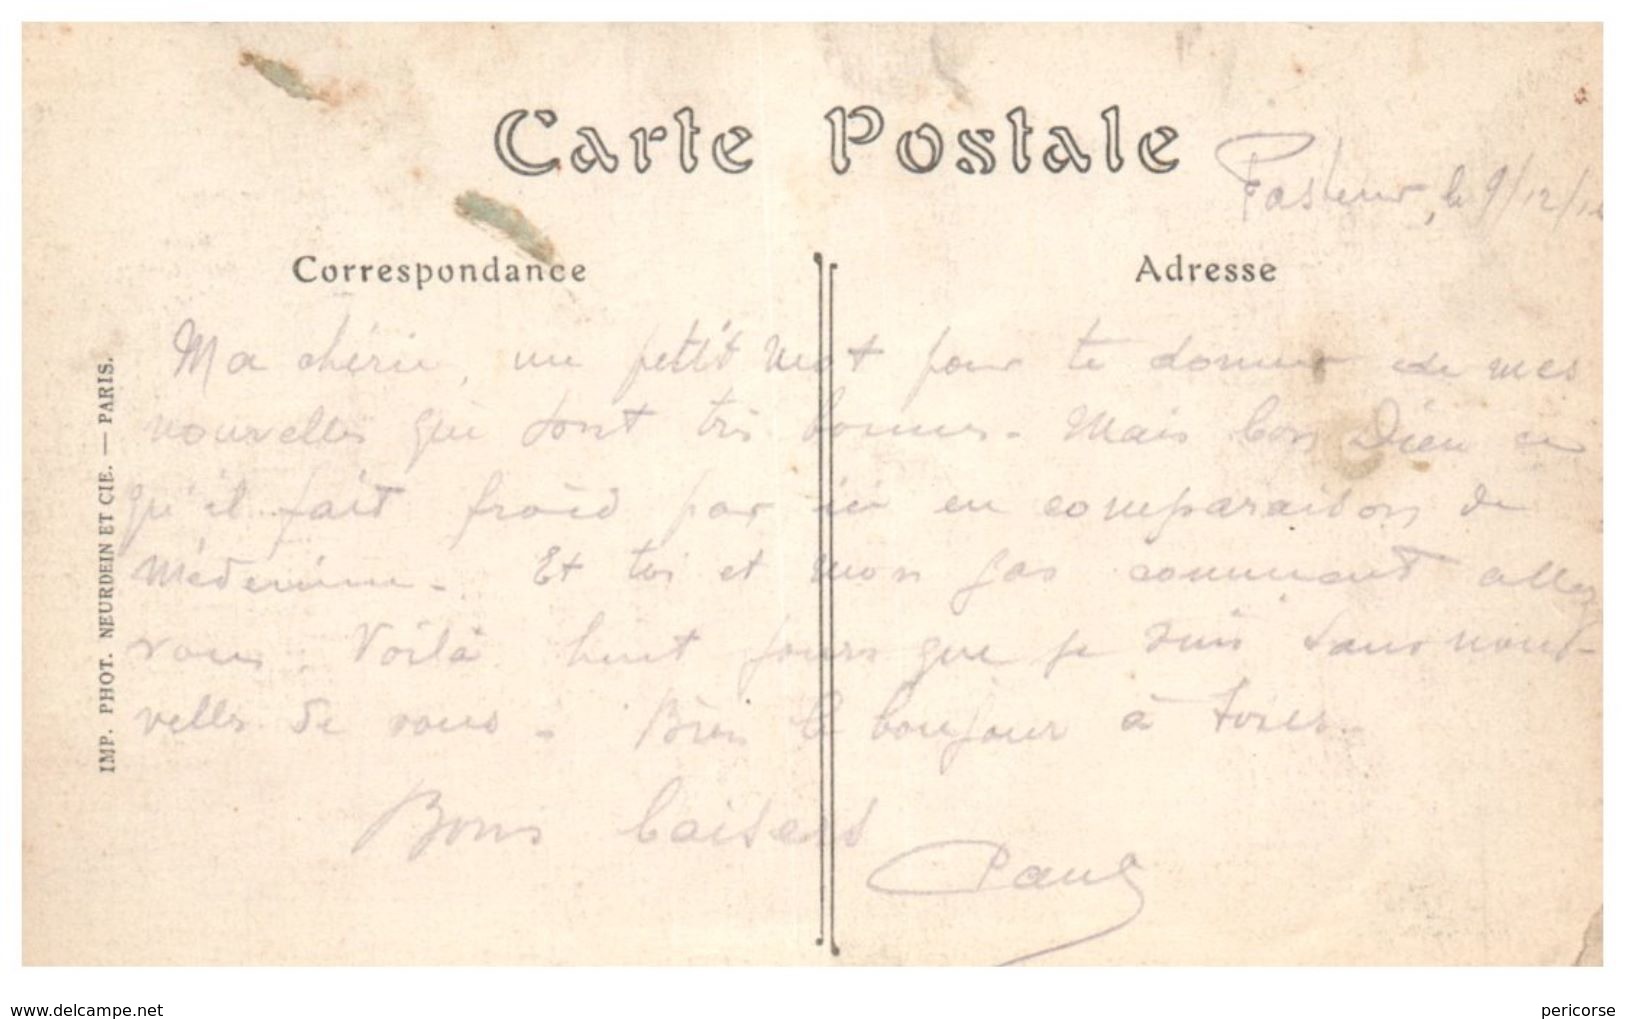 Carte Postale
Pasteur, le 9/12/
Correspondance
Adresse
Ma chérie, un petit mot pour te donner de mes
nouvelles qui sont très bonnes. Mais bon Dieu ce
qu'il fait froid par ici en comparaison de
Médenine. Et toi et mon gas comment allez
vous. Voilà huit jours que je suis sans nou-
velles de vous. Bien le bonjour à tous.
Bons baisers
Paul
IMP. PHOT. NEURDEIN ET CIE. — PARIS.
www.delcampe.net
pericorse